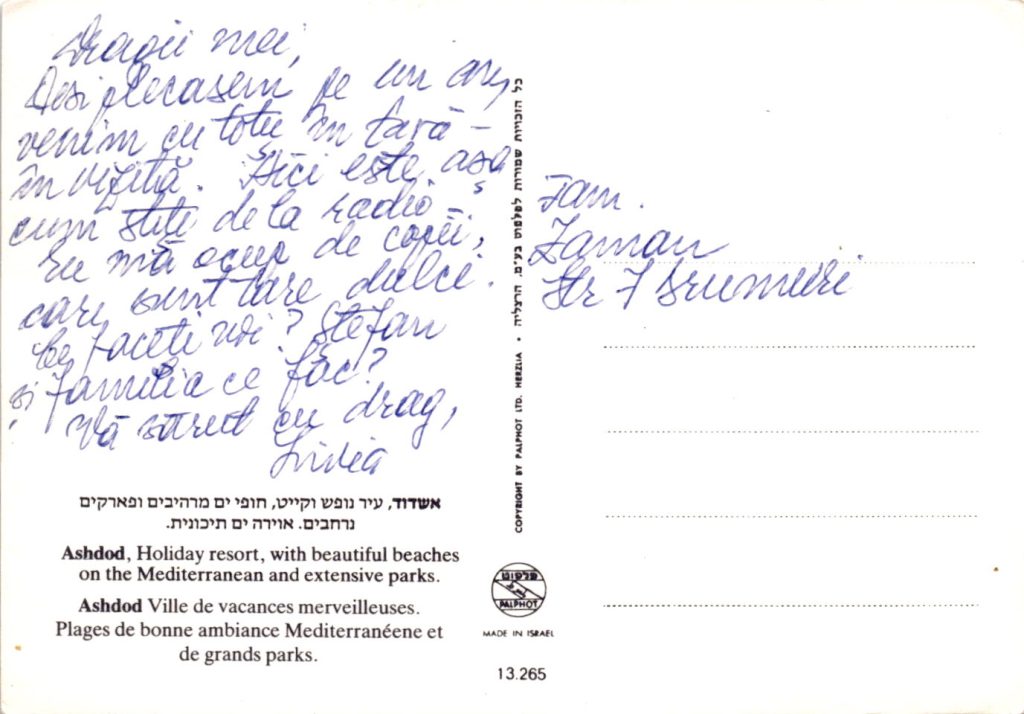 Dragii mei,
Deși plecasem pe un an,
venim cu totii în țară –
în vizită. Aici este așa
cum știți de la radio –
Eu mă ocup de copii,
cari sunt tare dulci.
Ce faceți voi? Ștefan
și familia ce fac?
Vă sărut cu drag,
Livia
Fam.
Zaman
Str 7 Drumuri
כל הזכויות שמורות לפלפוט בע״מ. הרצליה • COPYRIGHT BY PALPHOT LTD. HERZLIA
אשדוד, עיר נופש וקייט, חופי ים מרהיבים ופארקים
נרחבים. אוירה ים תיכונית.
Ashdod, Holiday resort, with beautiful beaches
on the Mediterranean and extensive parks.
Ashdod Ville de vacances merveilleuses.
Plages de bonne ambiance Mediterranéene et
de grands parks.
פלפוט
PALPHOT
MADE IN ISRAEL
13.265